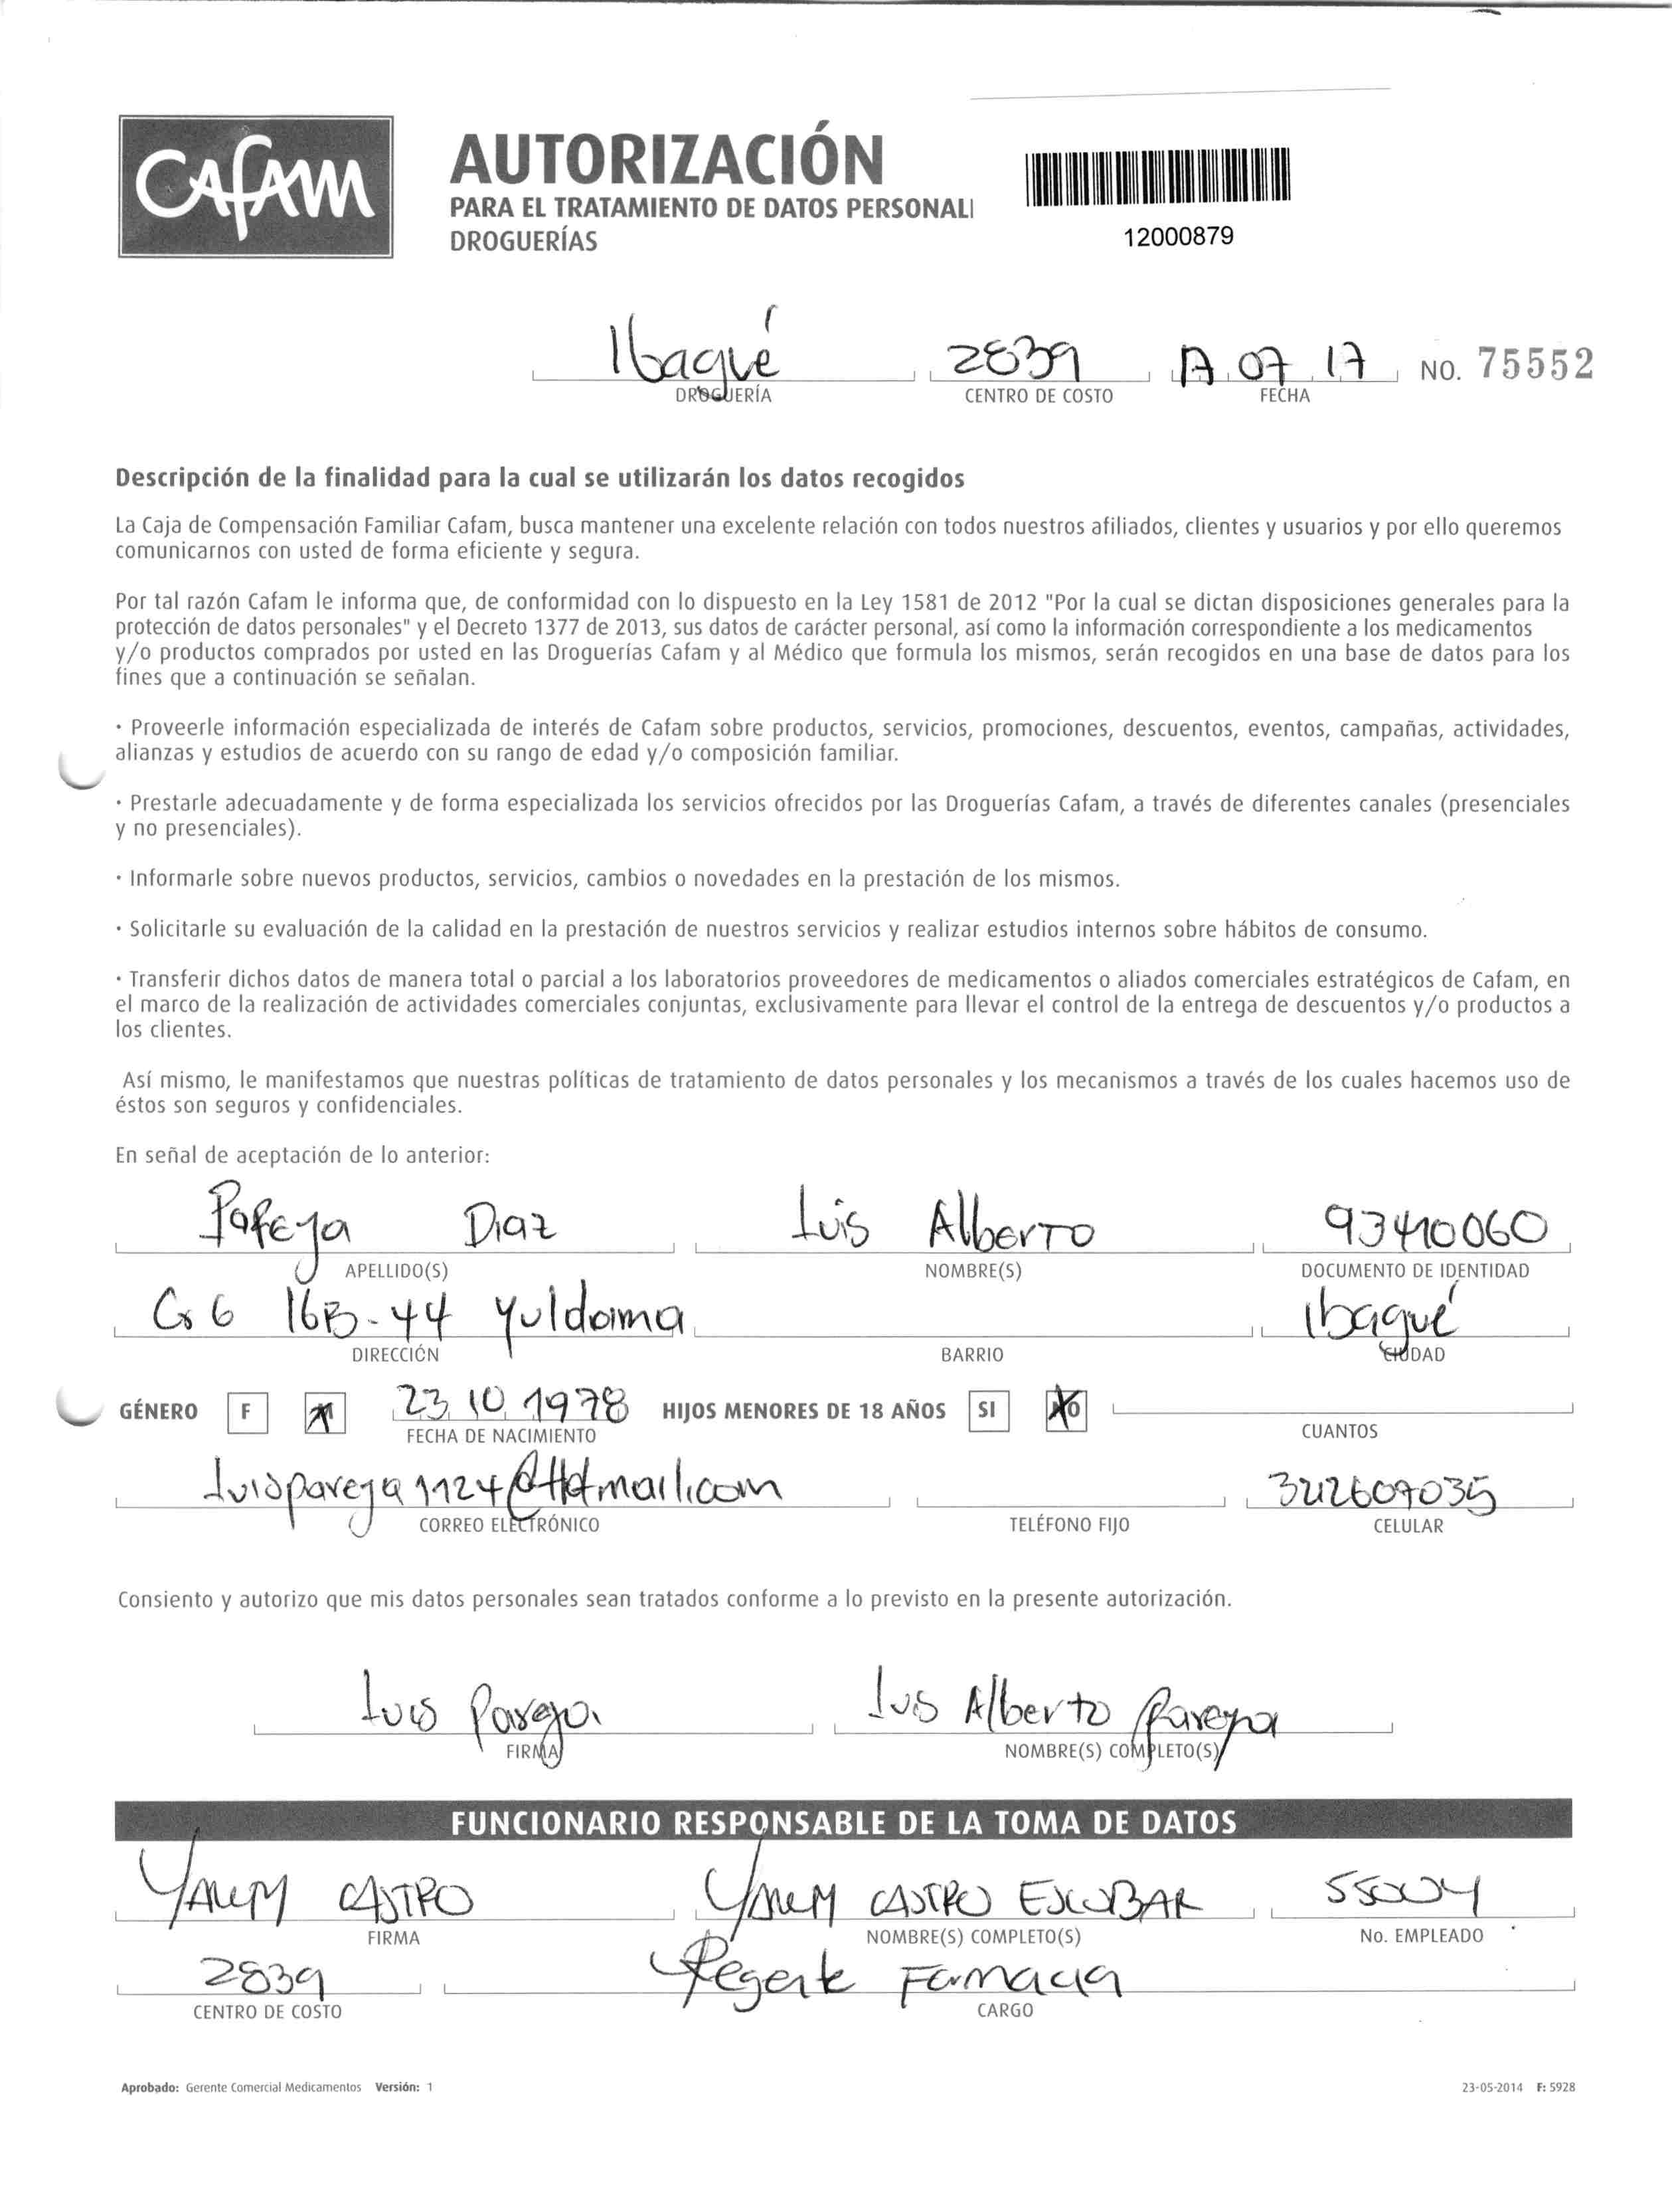 CAFAM
AUTORIZACIÓN
PARA EL TRATAMIENTO DE DATOS PERSONAL
DROGUERÍAS
12000879
Ibagué 2839 17 07 17 NO. 75552
DROGUERÍA CENTRO DE COSTO FECHA
Descripción de la finalidad para la cual se utilizarán los datos recogidos
La Caja de Compensación Familiar Cafam, busca mantener una excelente relación con todos nuestros afiliados, clientes y usuarios y por ello queremos
comunicarnos con usted de forma eficiente y segura.
Por tal razón Cafam le informa que, de conformidad con lo dispuesto en la Ley 1581 de 2012 "Por la cual se dictan disposiciones generales para la
protección de datos personales" y el Decreto 1377 de 2013, sus datos de carácter personal, así como la información correspondiente a los medicamentos
y/o productos comprados por usted en las Droguerías Cafam y al Médico que formula los mismos, serán recogidos en una base de datos para los
fines que a continuación se señalan.
· Proveerle información especializada de interés de Cafam sobre productos, servicios, promociones, descuentos, eventos, campañas, actividades,
alianzas y estudios de acuerdo con su rango de edad y/o composición familiar.
· Prestarle adecuadamente y de forma especializada los servicios ofrecidos por las Droguerías Cafam, a través de diferentes canales (presenciales
y no presenciales).
· Informarle sobre nuevos productos, servicios, cambios o novedades en la prestación de los mismos.
· Solicitarle su evaluación de la calidad en la prestación de nuestros servicios y realizar estudios internos sobre hábitos de consumo.
· Transferir dichos datos de manera total o parcial a los laboratorios proveedores de medicamentos o aliados comerciales estratégicos de Cafam, en
el marco de la realización de actividades comerciales conjuntas, exclusivamente para llevar el control de la entrega de descuentos y/o productos a
los clientes.
Así mismo, le manifestamos que nuestras políticas de tratamiento de datos personales y los mecanismos a través de los cuales hacemos uso de
éstos son seguros y confidenciales.
En señal de aceptación de lo anterior:
Pareja Diaz Luis Alberto 93410060
APELLIDO(S) NOMBRE(S) DOCUMENTO DE IDENTIDAD
Cr 6 16B-44 Yuldaima Ibagué
DIRECCIÓN BARRIO CIUDAD
GÉNERO F M 23 10 1978 HIJOS MENORES DE 18 AÑOS SI NO
FECHA DE NACIMIENTO CUANTOS
luispareja1124@Hotmail.com
CORREO ELECTRÓNICO TELÉFONO FIJO CELULAR
Consiento y autorizo que mis datos personales sean tratados conforme a lo previsto en la presente autorización.
Luis Pareja Luis Alberto Pareja
FIRMA NOMBRE(S) COMPLETO(S)
FUNCIONARIO RESPONSABLE DE LA TOMA DE DATOS
CASTRO CASTRO ESCOBAR 55004
FIRMA NOMBRE(S) COMPLETO(S) No. EMPLEADO
2839 Regente Farmacia
CENTRO DE COSTO CARGO
Aprobado: Gerente Comercial Medicamentos Versión: 1 23-05-2014 F: 5928